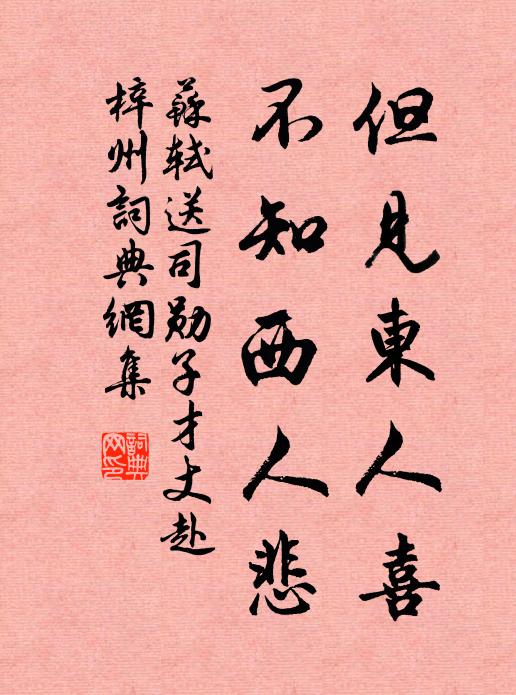 但見東人喜
不知西人悲
蘇軾送司勛子才丈赴
梓州詞典網集
詞典網印